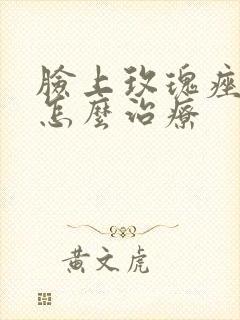 臉上玫瑰痤
怎麼治療
黃文虎